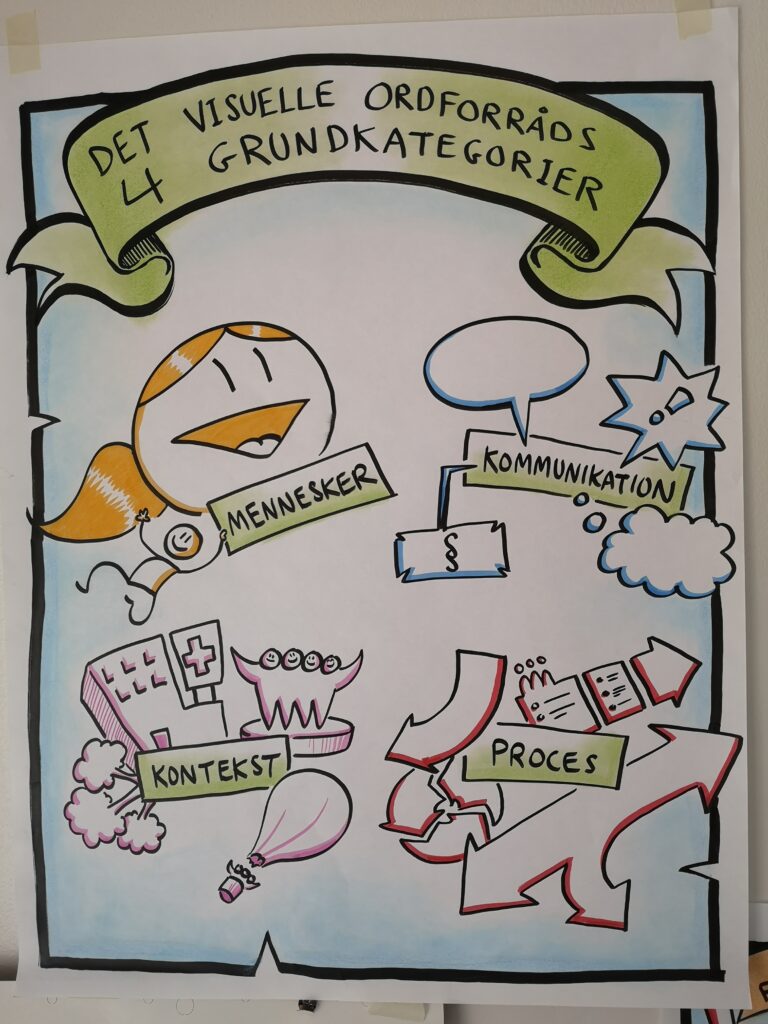 DET VISUELLE ORDFORRÅDS
4 GRUNDKATEGORIER
MENNESKER
KOMMUNIKATION
§
KONTEKST
PROCES